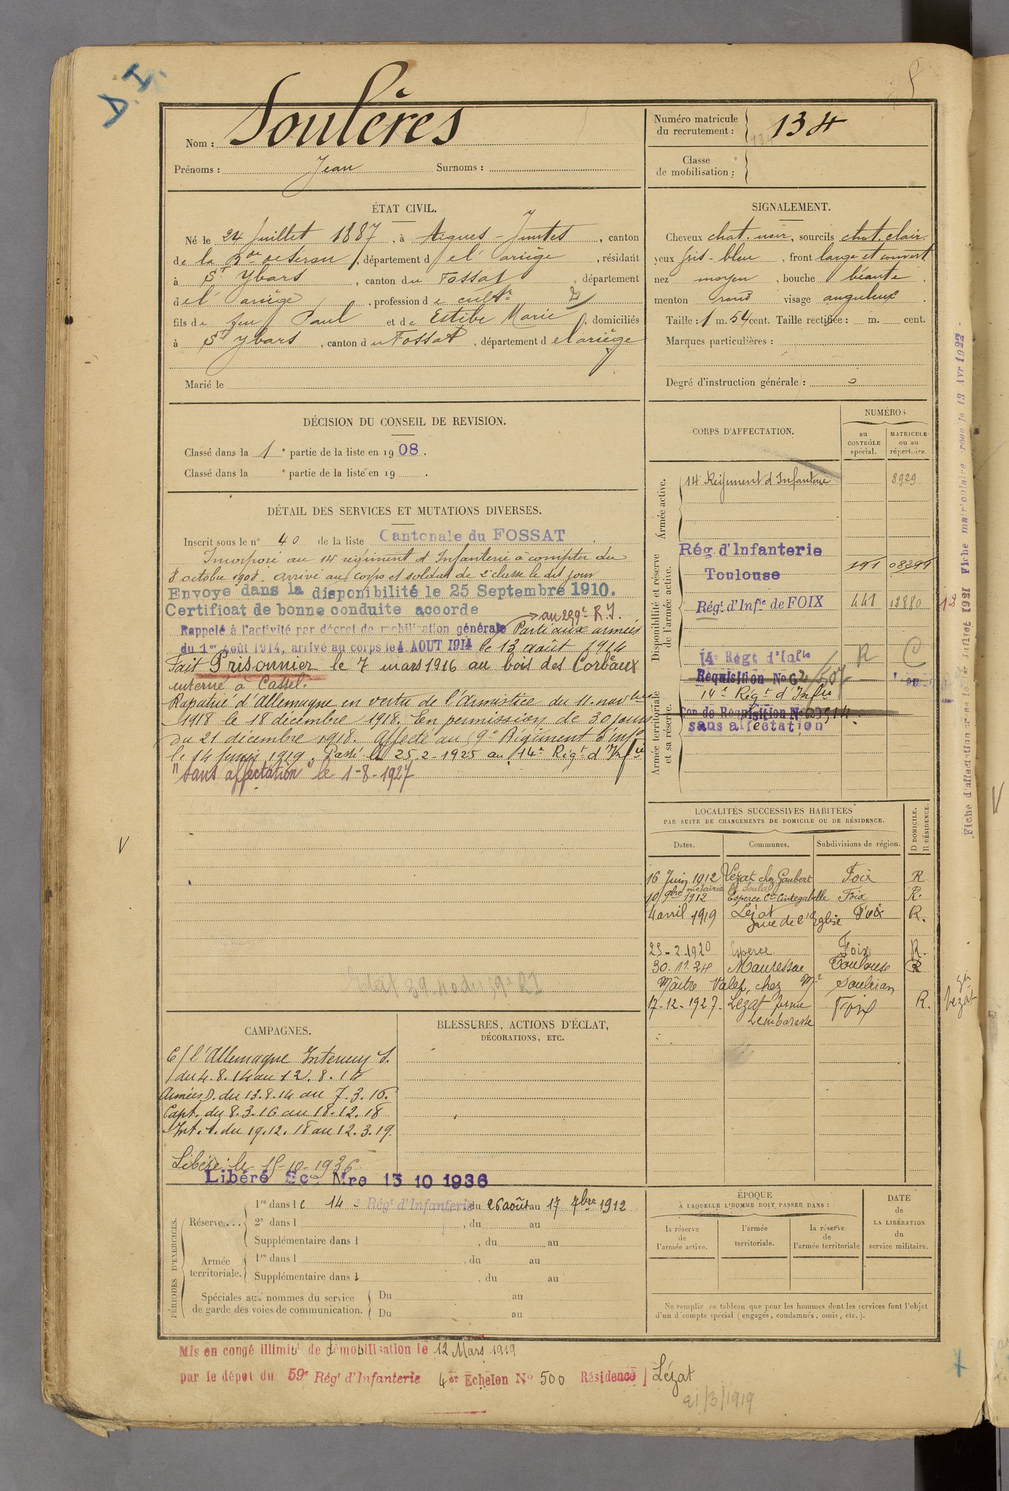 D. I.
Nom : Soulères
Prénoms : Jean Surnoms :
Numéro matricule du recrutement : 134
Classe de mobilisation :
ÉTAT CIVIL.
Né le 24 Juillet 1887, à Aigues-Juntes, canton
de la B de de Serou, département de l'Ariège, résidant
à St Ybars, canton du Fossat, département
de l'Ariège, profession de cultr
fils de feu Paul et de Estèbe Marie, domiciliés
à St Ybars, canton du Fossat, département de l'Ariège
Marié le
SIGNALEMENT.
Cheveux chat. noir, sourcils chat. clair.
yeux gris-bleu, front large et ouvert
nez moyen, bouche béante
menton rond visage anguleux
Taille : 1 m. 54 cent. Taille rectifiée : m. cent.
Marques particulières :
Degré d'instruction générale : 0
DÉCISION DU CONSEIL DE REVISION.
Classé dans la 1e partie de la liste en 1908.
Classé dans la e partie de la liste en 19 .
DÉTAIL DES SERVICES ET MUTATIONS DIVERSES.
Inscrit sous le n° 40 de la liste Cantonale du FOSSAT
Incorporé au 14 régiment d'Infanterie à compter du
8 octobre 1908. Arrivé au corps et soldat de 2e classe le dit jour
Envoyé dans la disponibilité le 25 Septembre 1910.
Certificat de bonne conduite accordé
Rappelé à l'activité par décret de mobilisation générale Parti aux armées
du 1er Août 1914, arrivé au corps le 4 AOUT 1914 le 13 août 1914
Fait Prisonnier le 7 mars 1916 au bois des Corbeaux
interné à Cassel.
Rapatrié d'Allemagne en vertu de l'Armistice du 11 novbre
1918 le 18 décembre 1918. En permission de 30 jours
du 21 décembre 1918. Affecté au 9e Régiment d'inf
le 14 juin 1919. Passé le 25-2-1925 au 14e Régt d'Infie
"Sans affectation" le 1-8-1927
CORPS D'AFFECTATION.
NUMÉROS
au CONTRÔLE spécial.
MATRICULE ou au répertoire.
Armée active.
14 Régiment d'Infanterie 8929
Disponibilité et réserve de l'armée active.
Rég d'Infanterie
Toulouse
Régt d'Infie de FOIX 441 12880
14e Régt d'Infie R C
Armée territoriale et sa réserve.
Réquisition No 62/507
14e Régt d'Infie
sans affectation
Fiche d'affectation
LOCALITÉS SUCCESSIVES HABITÉES
PAR SUITE DE CHANGEMENTS DE DOMICILE OU DE RÉSIDENCE.
Dates. Communes. Subdivisions de région. D DOMICILE. R RÉSIDENCE.
16 Juin 1912 Lézat chez Gaubert Foix R
10 9bre 1912 Esperce Cn Cintegabelle Foix R.
4 avril 1919 Lézat rue de l'Eglise Foix R.
25-2-1920 Esperce Foix R.
30. 12. 24 Mauressac Toulouse R
Maître Valet, chez Mr
17-12-1927. Lézat Foix R.
CAMPAGNES.
C/ l'Allemagne Intérieur S.
du 4.8.14 au 12.8.14
Armées D. du 13.8.14 au 7.3.16.
Capt. du 8.3.16 au 18.12.18
Int. S. du 19.12.18 au 12.3.19.
Libéré le 15-10-1936
Libéré Sce Mre 15 10 1936
BLESSURES, ACTIONS D'ÉCLAT,
DÉCORATIONS, ETC.
PÉRIODES D'EXERCICES.
Réserve....
1re dans le 14e Régt d'Infanterie du 26 août au 17 7bre 1912
2e dans l , du au
Supplémentaire dans l , du au
Armée territoriale.
1re dans l , du au
Supplémentaire dans l , du au
Spéciales aux nommes du service de garde des voies de communication.
Du au
Du au
ÉPOQUE
À LAQUELLE L'HOMME DOIT PASSER DANS :
la réserve de l'armée active.
l'armée territoriale.
la réserve de l'armée territoriale
DATE de LA LIBÉRATION du service militaire.
Ne remplir ce tableau que pour les hommes dont les services font l'objet
d'un décompte spécial (engagés, condamnés, omis, etc.).
Mis en congé illimité de démobilisation le 12 Mars 1919
par le dépôt du 59e Régt d'Infanterie 4e Echelon No 500 Résidence Lézat
21/3/1919